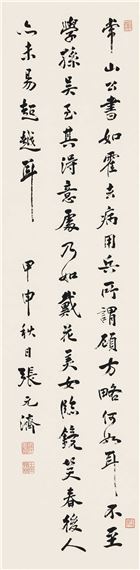 常山公書如霍去病用兵所謂顧方略何如耳不至
學孫吳至其得意處乃如戴花美女臨鏡笑春後人
亦未易超越耳
甲申秋日張元濟